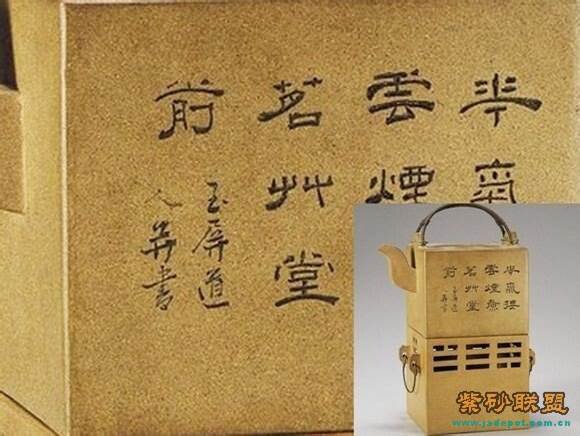 氣
雲煙
茗艸堂
前
玉屏道
人并書
紫砂联盟
www.jadepot.com.cn